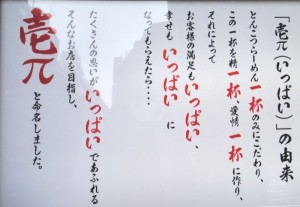 「壱π(いっぱい)」の由来
とんこつらーめん一杯のみにこだわり、
この一杯を精一杯愛情一杯に作り、
それによって
お客様の満足もいっぱい、
幸せもいっぱいに
なってもらえたら・・・・
たくさんの思いがいっぱいであふれる
そんなお店を目指し、
壱π と命名しました。